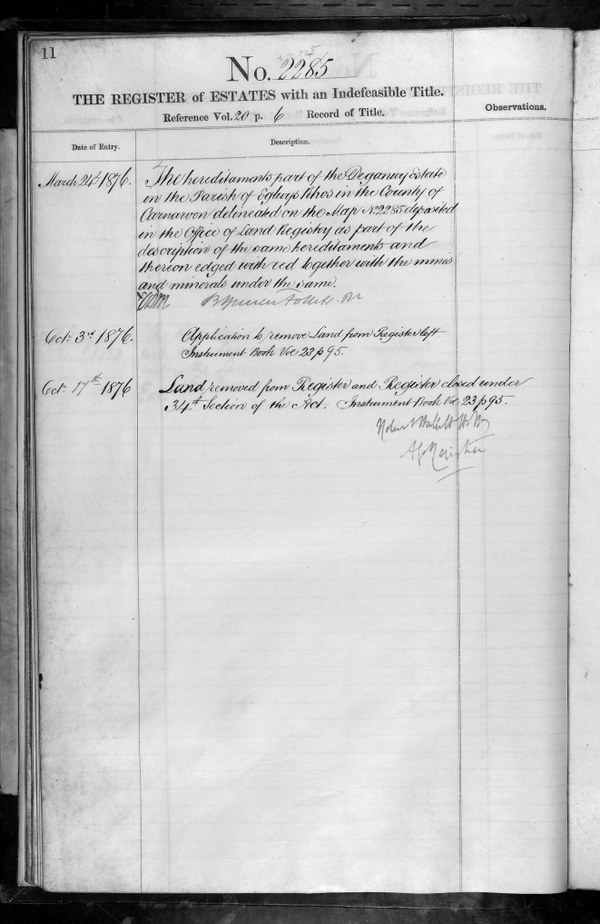 11
No. 2285
THE REGISTER of ESTATES with an Indefeasible Title.
Reference Vol. 20 p. 6 Record of Title.
Observations.
Date of Entry.
Description.
March 24th 1876.
The hereditaments part of the Deganwy Estate
in the Parish of Eglwys Rhos in the County of
Carnarvon delineated on the Map No. 2285 deposited
in the Office of Land Registry as part of the
description of the same hereditaments and
thereon edged with red together with the mines
and minerals under the same.
Oct. 3rd 1876.
Application to remove Land from Register left.
Instrument Book Vol. 23 p 95.
Oct. 17th 1876
Land removed from Register and Register closed under
34th Section of the Act. Instrument Book Vol. 23 p 95.